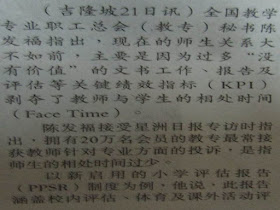 （吉隆坡21日讯）全国教学
专业职工总会（教专）秘书陈
发福指出，现在的师生关系大
不如前，主要是因为过多“没
有价值”的文书工作、报告及
评估等关键绩效指标（KPI）
剥夺了教师与学生的相处时间
（Face Time）。
陈发福接受星洲日报专访时指
出，拥有20万名会员的教专最常接
获教师针对专业方面的投诉，是指
师生的相处时间过少。
以新启用的小学评估报告
（PPSR）制度为例，他说，此报告
涵盖校内评估、体育及课外活动评